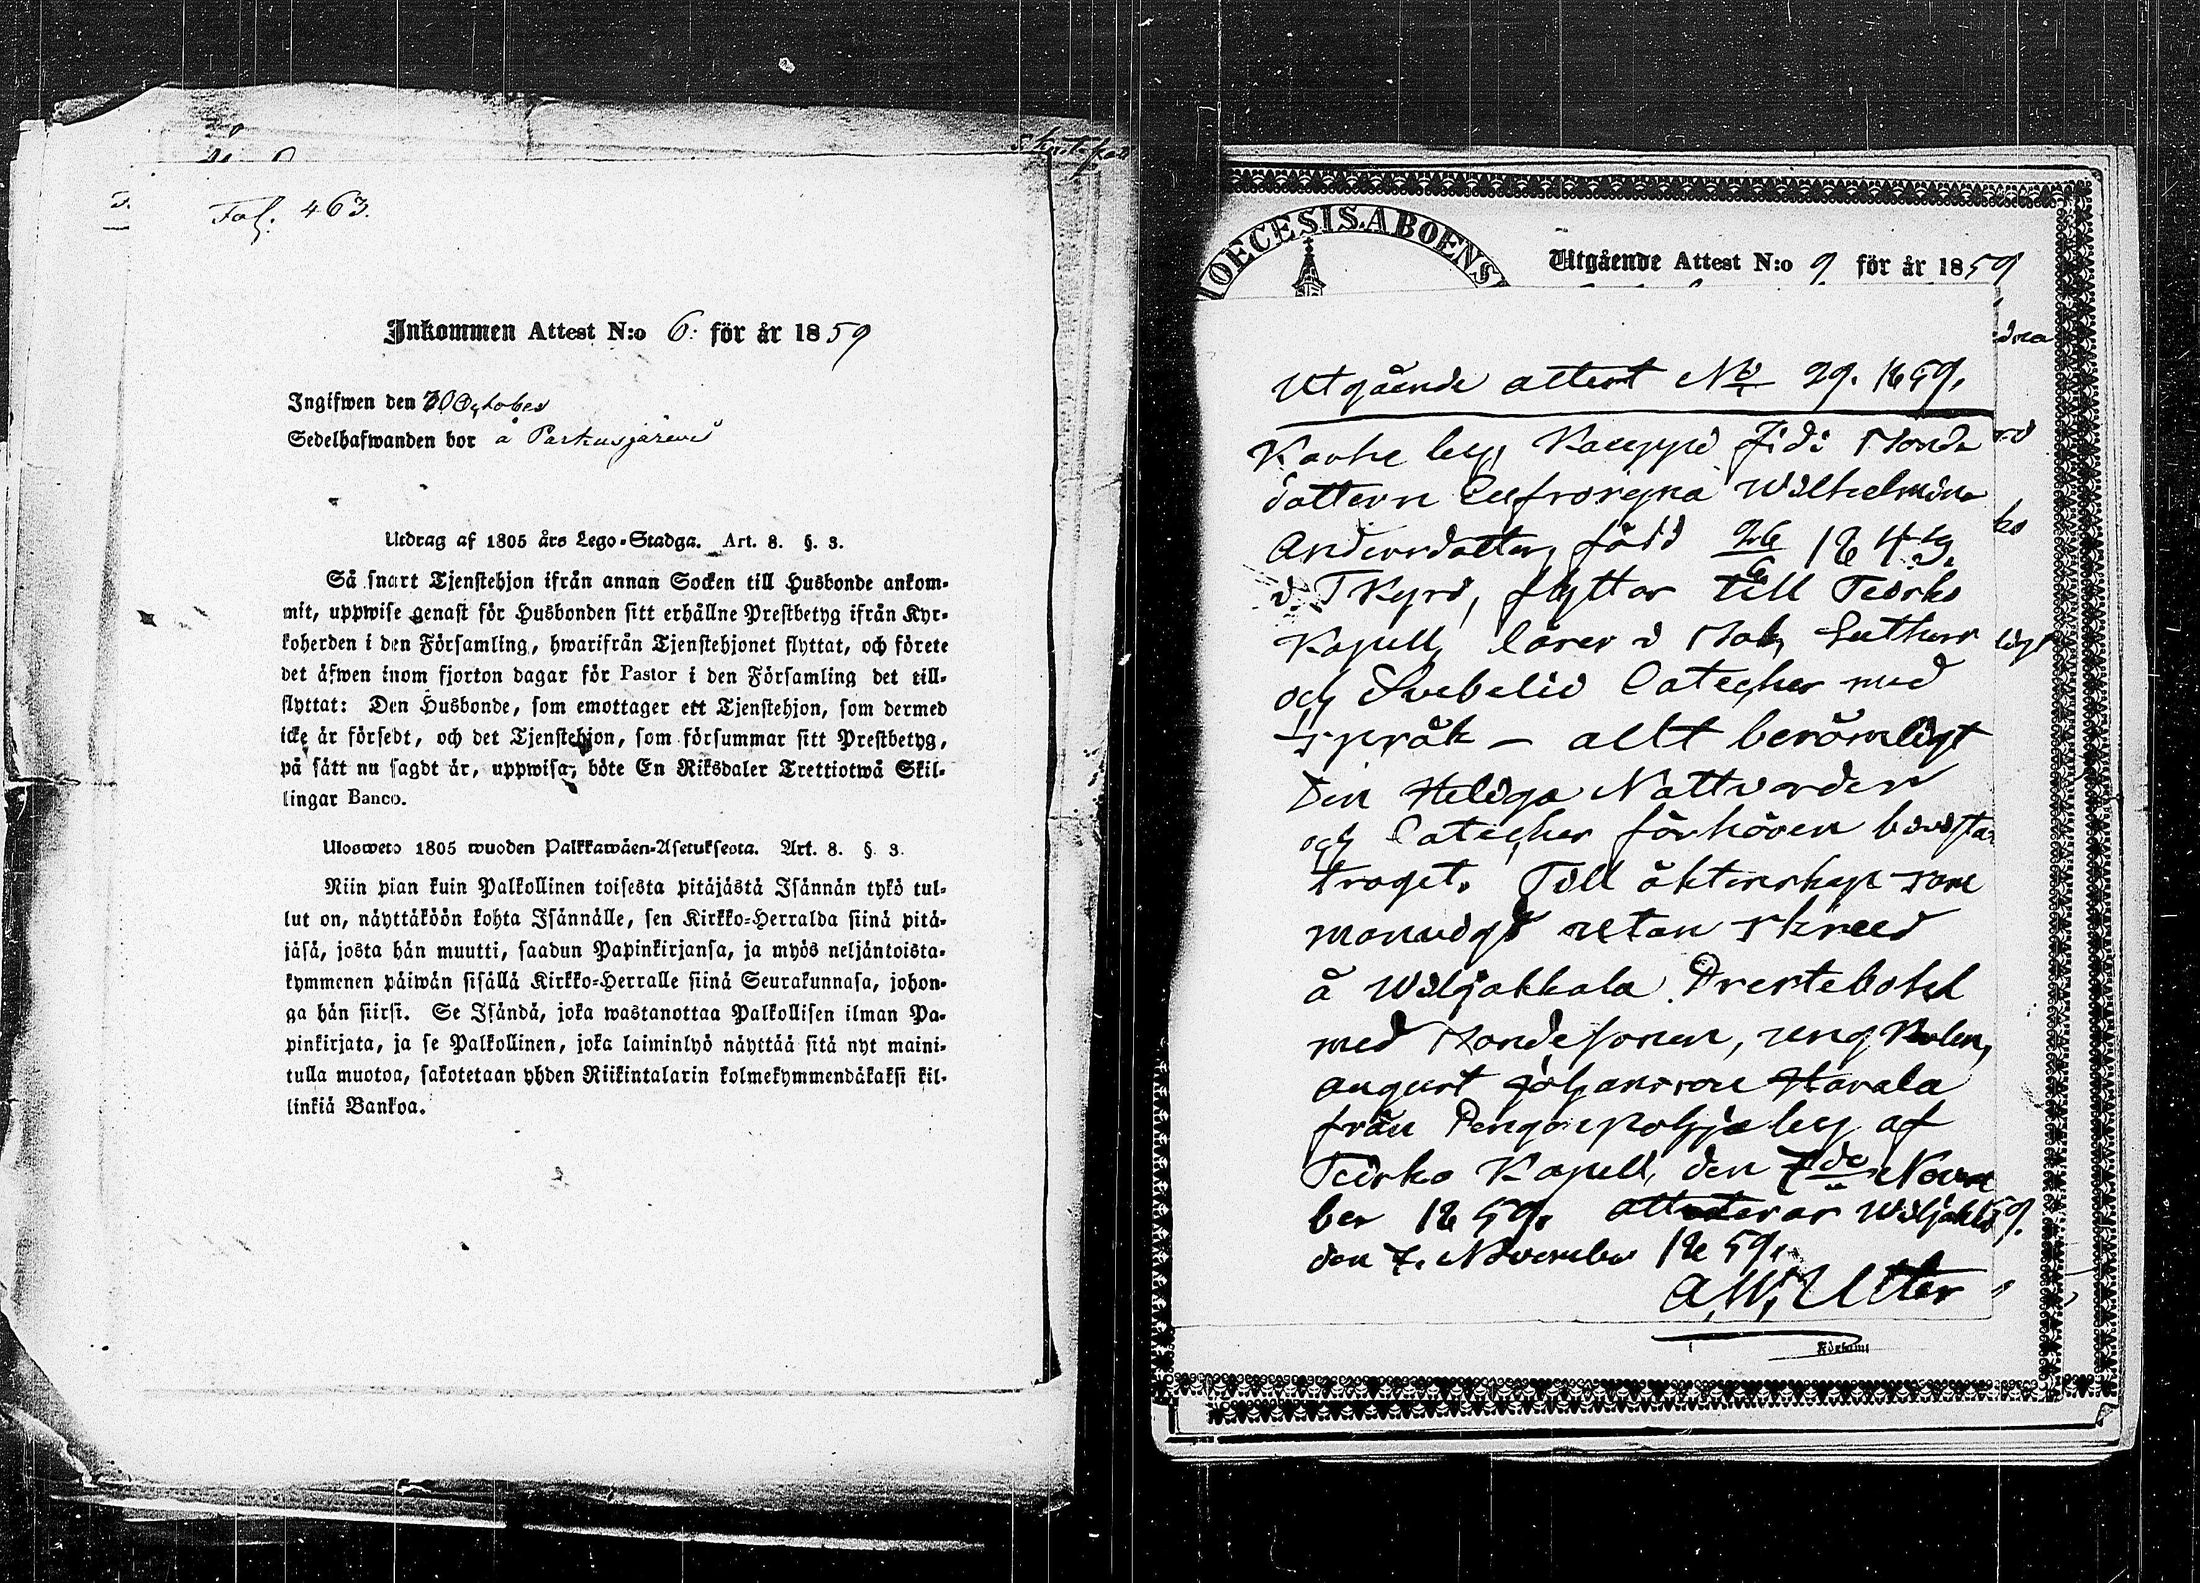 Fol. 463.
Inkommen Attest N:o 6. för år 1859
Ingifwen den October
Sedelhafwanden bor å Parkusjärwi
Utdrag af 1805 års Lego-Stadga. Art. 8. §. 3.
Så snart Tjenstehjon ifrån annan Socken till Husbonde ankom-
mit, uppwise genast för Husbonden sitt erhållne Prestbetyg ifrån Kyr-
koherden i den Församling, hwarifrån Tjenstehjonet flyttat, och förete
det äfwen inom fjorton dagar för Pastor i den Församling det till-
flyttat: Den Husbonde, som emottager ett Tjenstehjon, som dermed
icke är försedt, och det Tjenstehjon, som försummar sitt Prestbetyg,
på sätt nu sagdt är, uppwisa, böte En Riksdaler Trettiotwå Skil-
lingar Banco.
Ulosweto 1805 wuoden Palkkawäen-Asetuksesta. Art. 8. §. 3.
Niin pian kuin Palkollinen toisesta pitäjästä Isännän tykö tul-
lut on, näyttäköön kohta Isännälle, sen Kirkko-Herralda siinä pitä-
jäsä, josta hän muutti, saadun Papinkirjansa, ja myös neljäntoista-
kymmenen päiwän sisällä Kirkko-Herralle siinä Seurakunnasa, johon-
ga hän siirsi. Se Isändä, joka wastanottaa Palkollisen ilman Pa-
pinkirjata, ja se Palkollinen, joka laiminlyö näyttää sitä nyt maini-
tulla muotoa, sakotetaan yhden Riikintalarin kolmekymmendäkaksi kil-
linkiä Bankoa.
DIOECESIS.ABOENS
Utgående Attest N:o 9. för år 1859
Utgående attest No 29. 1859.
Karhe by, Kauppi fi d: Bonde
dottern Eufrosyna Wilhelmina
Andersdotter, född 26/6 1843.
i TKyro, flyttar till Teisko
Kapell, läser i Bok, Luthers
och Svebelii Cateches med
språk – allt berömligt
Den Heliga Nattvarden
och Cateches förhören bevista
traget. Till äktenskap som
manvigt utan skreed
å Wiljakkala Prestebohl
med Bondesonen, ungKarlen,
August Johansson Harala
från Pengonpohja by af
Teisko Kapell, den 7de Novem
ber 1859. attesterar Wiljakkl
den 7. November 1859.
A. W. Utter